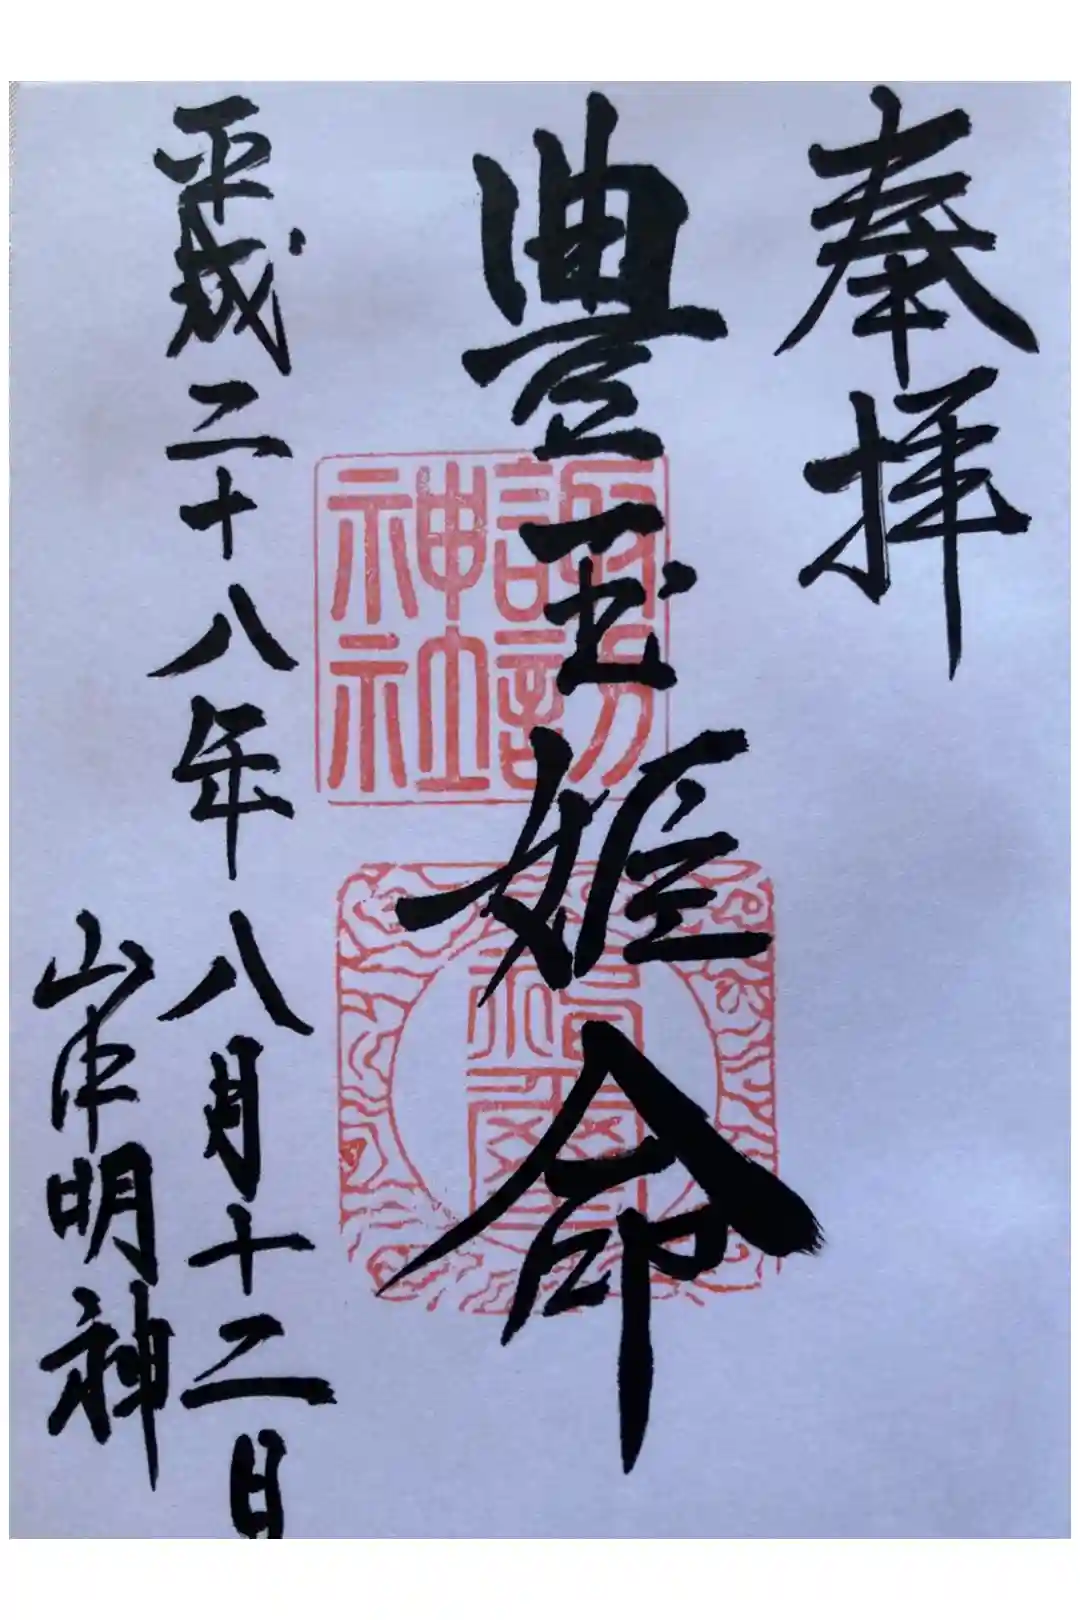 奉拝
豊玉姫命
諏訪
神社
平成二十八年八月十二日
山中明神